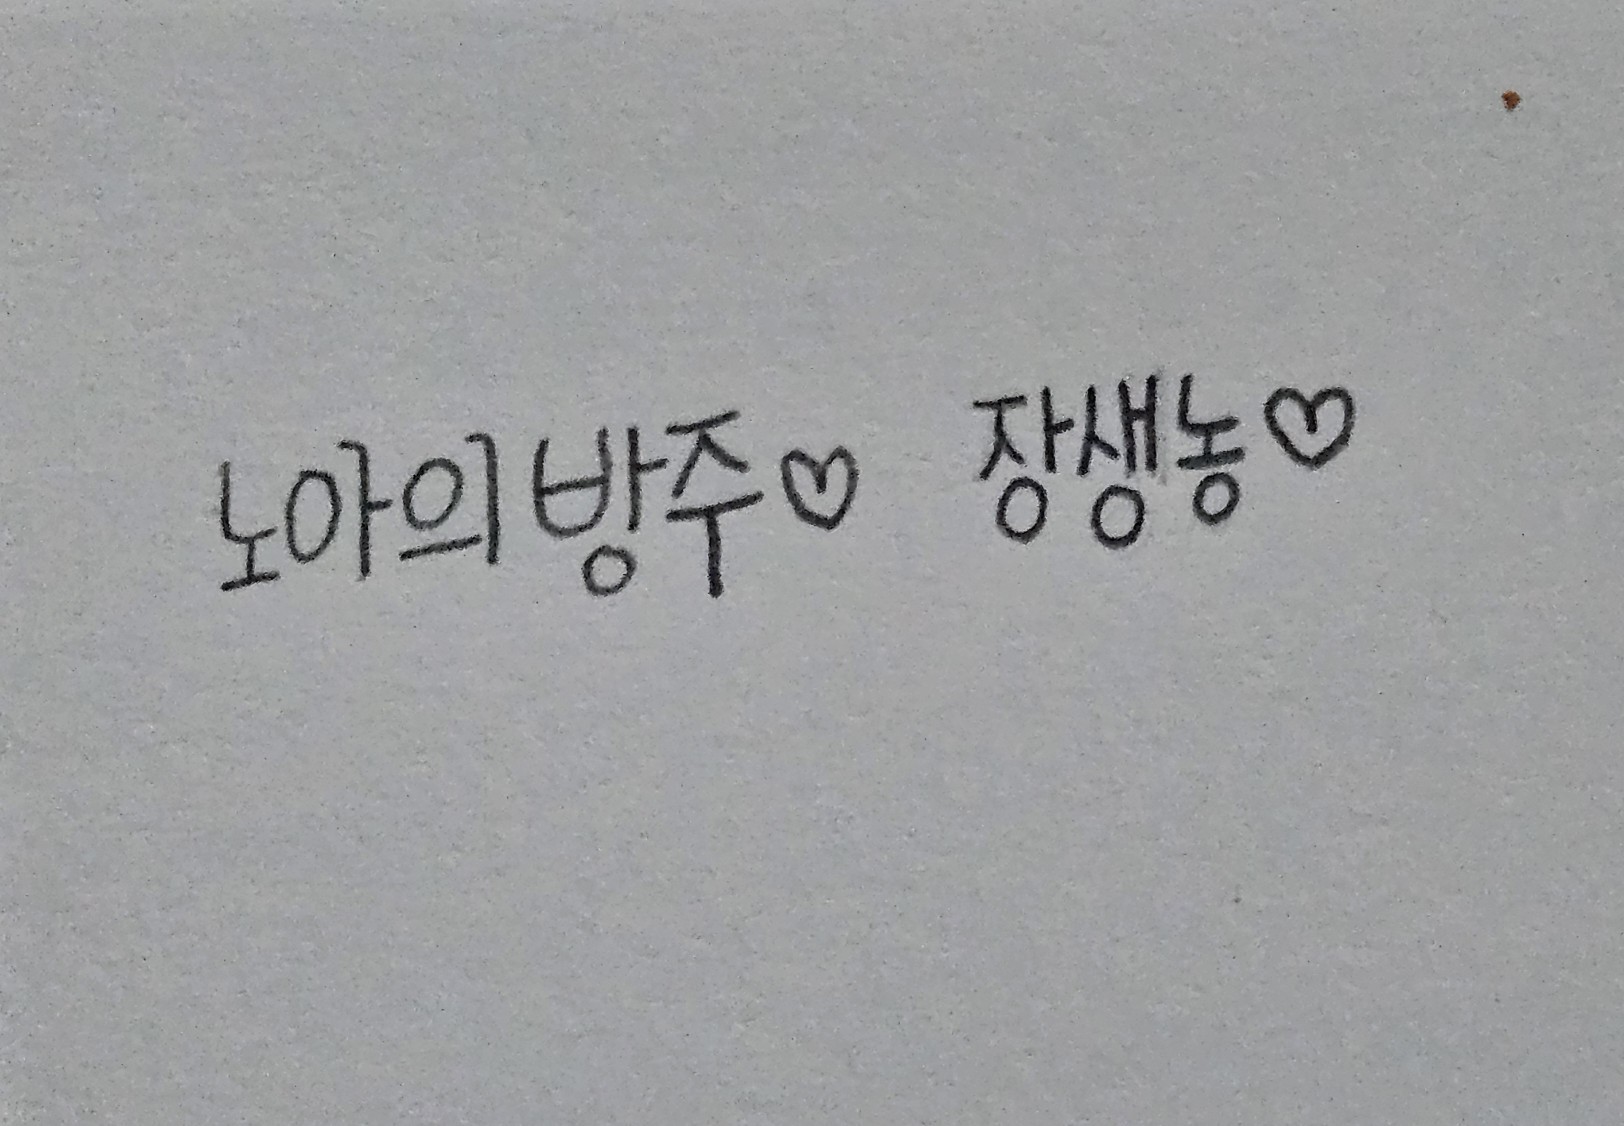 노아의방주♡ 장생농♡